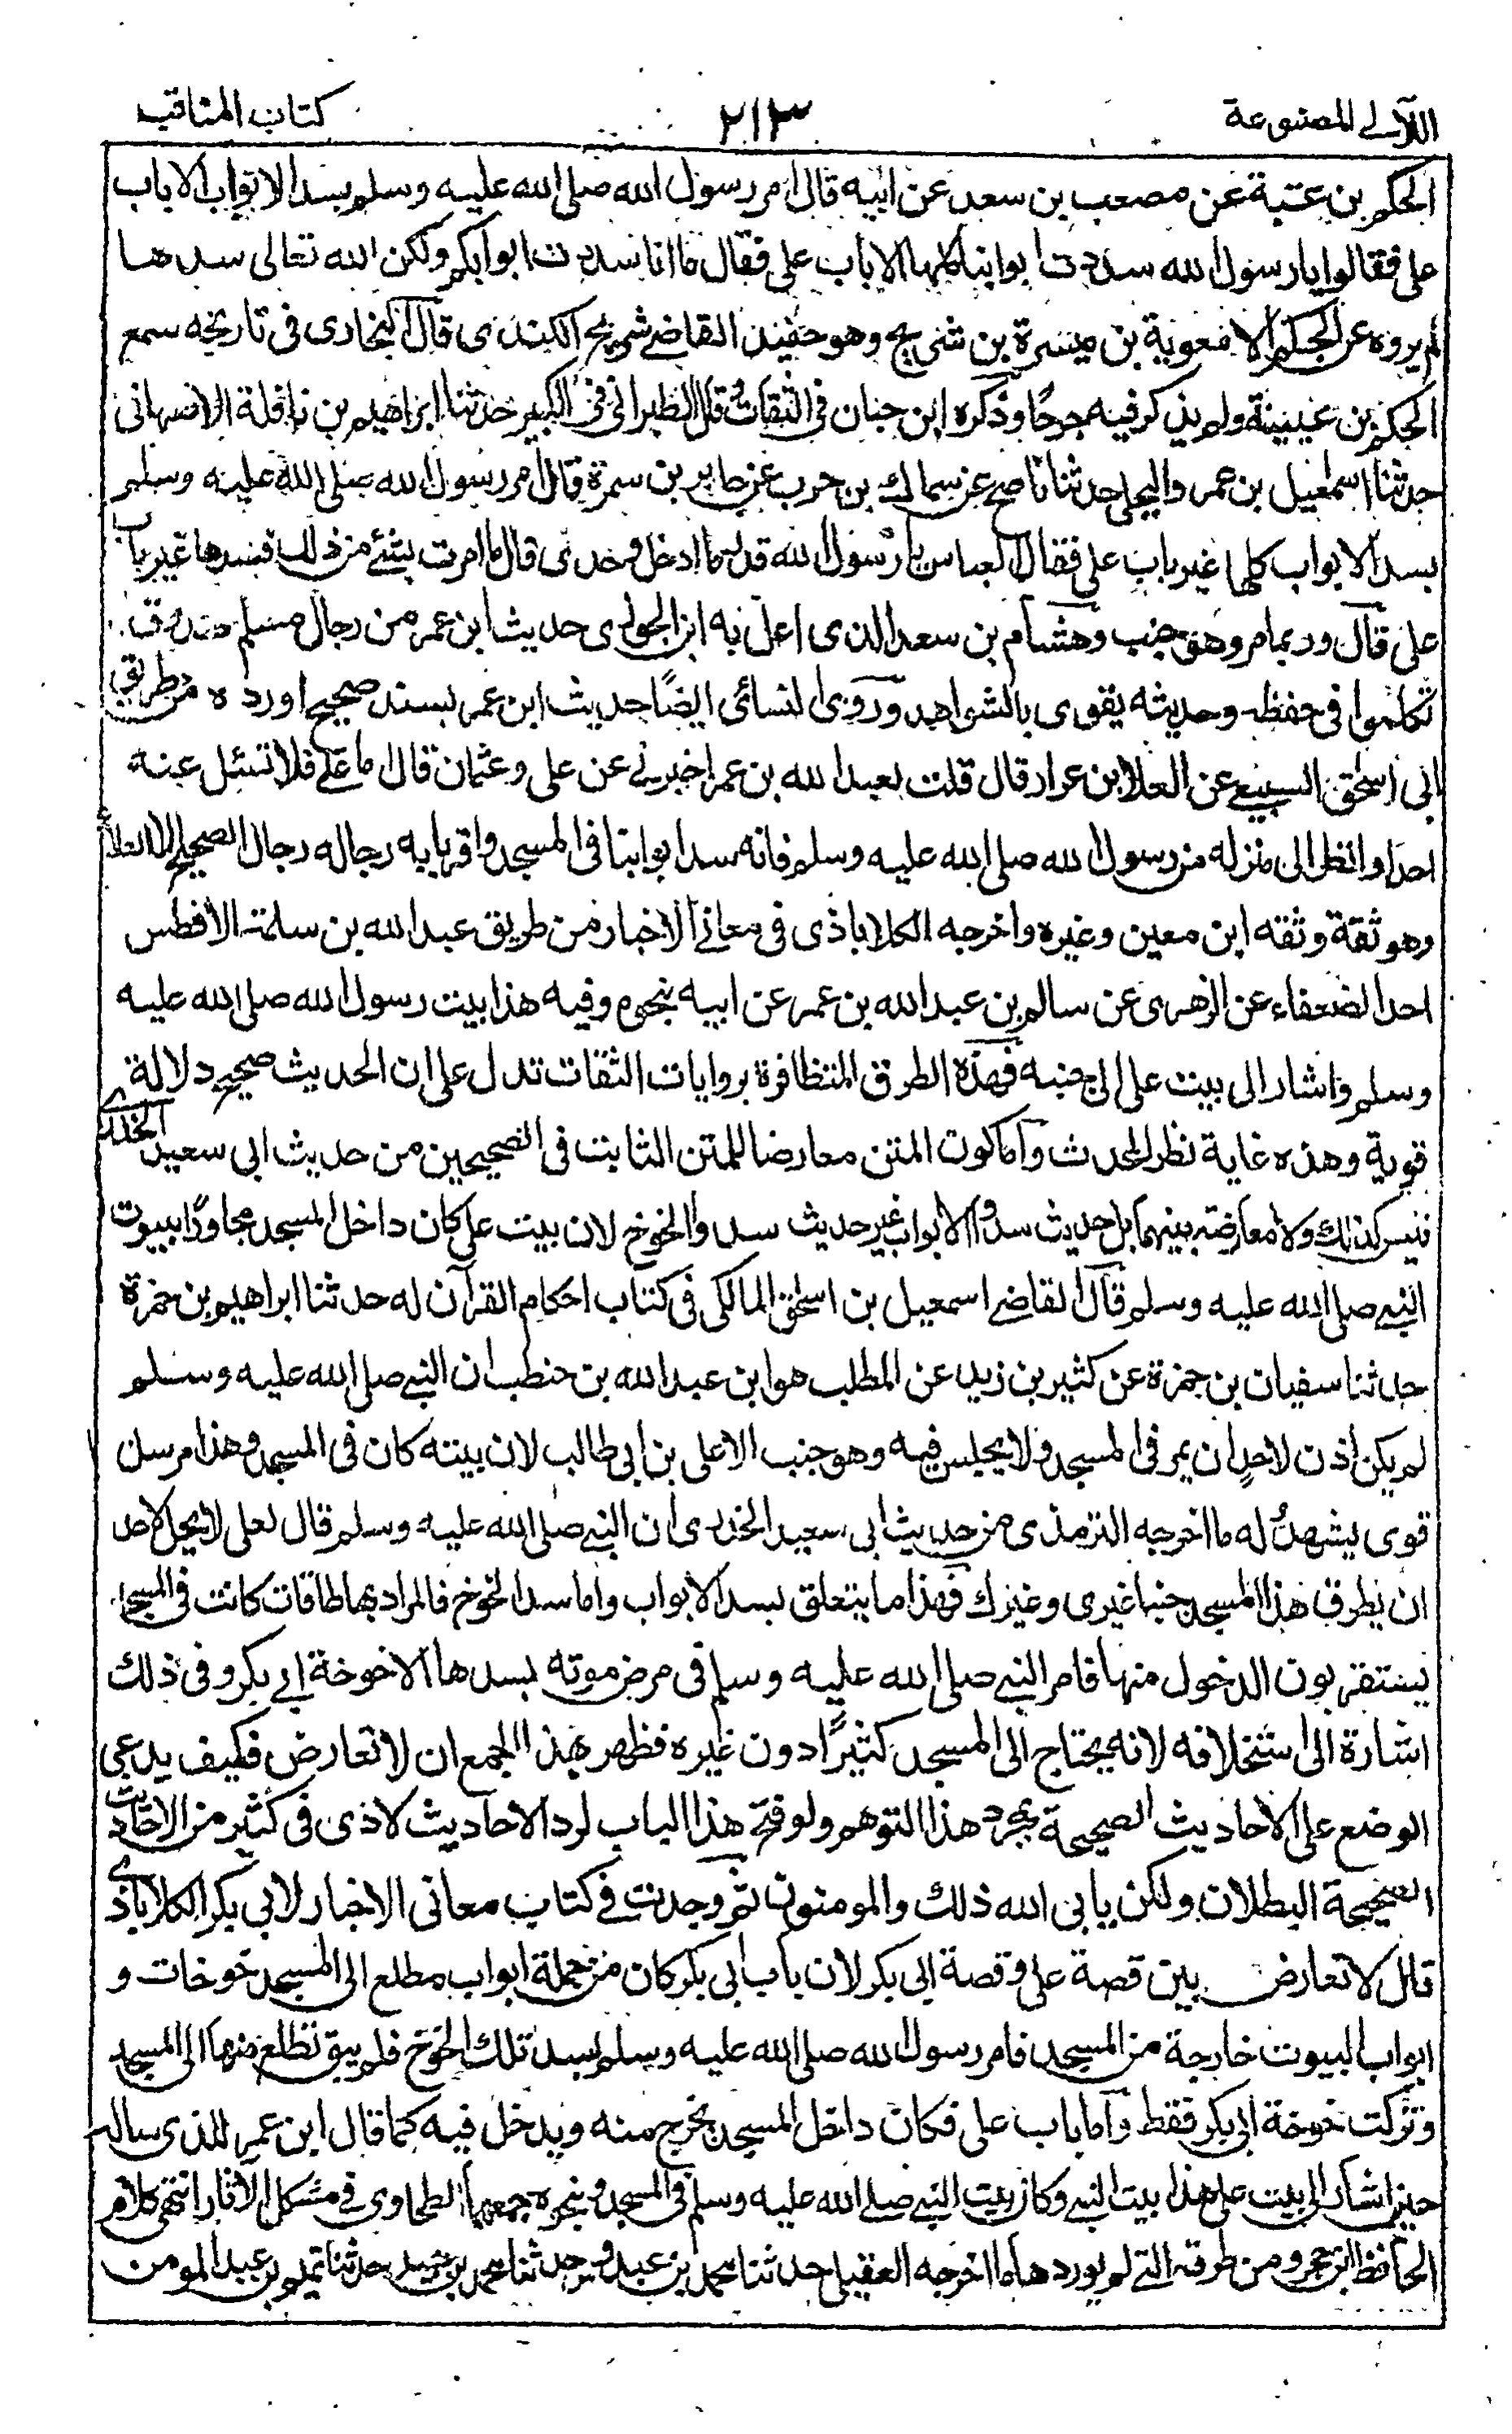 اللآلى المصنوعة
٢١٣
كتاب المناقب
الحكم بن عتبة عن مصعب بن سعد عن ابيه قال امر رسول الله صلى الله عليه وسلم بسد الابواب الا باب
على فقالوا يا رسول الله سددت ابوابنا كلها الا باب على فقال ما انا سددت ابوابكم ولكن الله تعالى سدها
لم يروه عن الحكم الا معوية بن ميسرة بن شريح وهو حفيد القاضى شريح الكندى قال البخارى فى تاريخه سمع
الحكم بن عيينة ولم يذكر فيه جرحا وذكره ابن حبان فى الثقات وقال الطبرانى فى الكبير حدثنا ابراهيم بن نائلة الاصبهانى
حدثنا اسمعيل بن عمر والبجلى حدثنا ناصح عن سماك بن حرب عن جابر بن سمرة قال امر رسول الله صلى الله عليه وسلم
بسد الابواب كلها غير باب على فقال العباس يا رسول الله قدر ما ادخل وحدى قال ما امرت بشئ من ذلك فسدها غير باب
على قال وربما مر وهو جنب وهشام بن سعد الذى اعل به ابن الجوزى حديث ابن عمر من رجال مسلم صدوق
تكلموا فى حفظه وحديثه يقوى بالشواهد وروى النسائى ايضًا حديث ابن عمر بسند صحيح اورده من طريق
ابى اسحق السبيعى عن العلا ابن عرار قال قلت لعبد الله بن عمر اخبرنى عن على وعثمان قال اما على فلا تسئل عنه
احدا وانظر الى منزله من رسول الله صلى الله عليه وسلم فانه سد ابوابنا فى المسجد واقر بابه رجاله رجال الصحيح الا العلاء
وهو ثقة وثقه ابن معين وغيره واخرجه الكلاباذى فى معانى الاخبار من طريق عبد الله بن سلمة الافطس
احد الضعفاء عن الزهرى عن سالم بن عبد الله بن عمر عن ابيه بنحوه وفيه هذا بيت رسول الله صلى الله عليه
وسلم واشار الى بيت على الى جنبه فهذه الطرق المتظافرة بروايات الثقات تدل على ان الحديث صحيح دلالة
قوية وهذه غاية نظر المحدث واما كون المتن معارضا للمتن الثابت فى الصحيحين من حديث ابى سعيد الخدرى
فليس كذلك ولا معارضة بينهما بل حديث سدوا الابواب غير حديث سدوا الخوخ لان بيت على كان داخل المسجد مجاورًا لبيوت
النبى صلى الله عليه وسلم قال القاضى اسمعيل بن اسحق المالكى فى كتاب احكام القرآن له حدثنا ابراهيم بن حمزة
حدثنا سفيان بن حمزة عن كثير بن زيد عن المطلب هو ابن عبد الله بن حنطب ان النبى صلى الله عليه وسلم
لم يكن اذن لاحد ان يمر فى المسجد ولا يجلس فيه وهو جنب الا على بن ابى طالب لان بيته كان فى المسجد وهذا مرسل
قوى يشهد له ما اخرجه الترمذى من حديث ابى سعيد الخدرى ان النبى صلى الله عليه وسلم قال لعلى لا يحل لاحد
ان يطرق هذا المسجد جنبا غيرى وغيرك فهذا ما يتعلق بسد الابواب واما سد الخوخ فالمراد بها طاقات كانت فى المسجد
يستقربون الدخول منها فامر النبى صلى الله عليه وسلم فى مرض موته بسدها الا خوخة ابى بكر وفى ذلك
اشارة الى استخلافه لانه يحتاج الى المسجد كثيرًا دون غيره فظهر بهذا الجمع ان لا تعارض فكيف يدعى
الوضع على الاحاديث الصحيحة بمجرد هذا التوهم ولو فتح هذا الباب لرد الاحاديث لادى فى كثير من الاحاديث
الصحيحة البطلان ولكن يابى الله ذلك والمومنون ثم وجدت فى كتاب معانى الاخبار لابى بكر الكلاباذى
قال لا تعارض بين قصة على وقصة ابى بكر لان باب ابى بكر كان من جملة ابواب مطلع الى المسجد خوخات و
ابواب البيوت خارجة من المسجد فامر رسول الله صلى الله عليه وسلم بسد تلك الخوخ فلم يبق تطلع منها الى المسجد
وتركت خوخة ابى بكر فقط واما باب على فكان داخل المسجد يخرج منه ويدخل فيه كما قال ابن عمر للذى ساله
حين اشار الى بيت على هذا بيت النبى وكان بيت النبى صلى الله عليه وسلم فى المسجد وبنحوه جمعهما الطحاوى فى مشكل الاثار انتهى كلام
الحافظ ابن حجر ومن طرقه التى لم يوردها ما اخرجه العقيلى حدثنا محمد بن عبدوس حدثنا محمد بن حميد حدثنا تميم بن عبد المومن